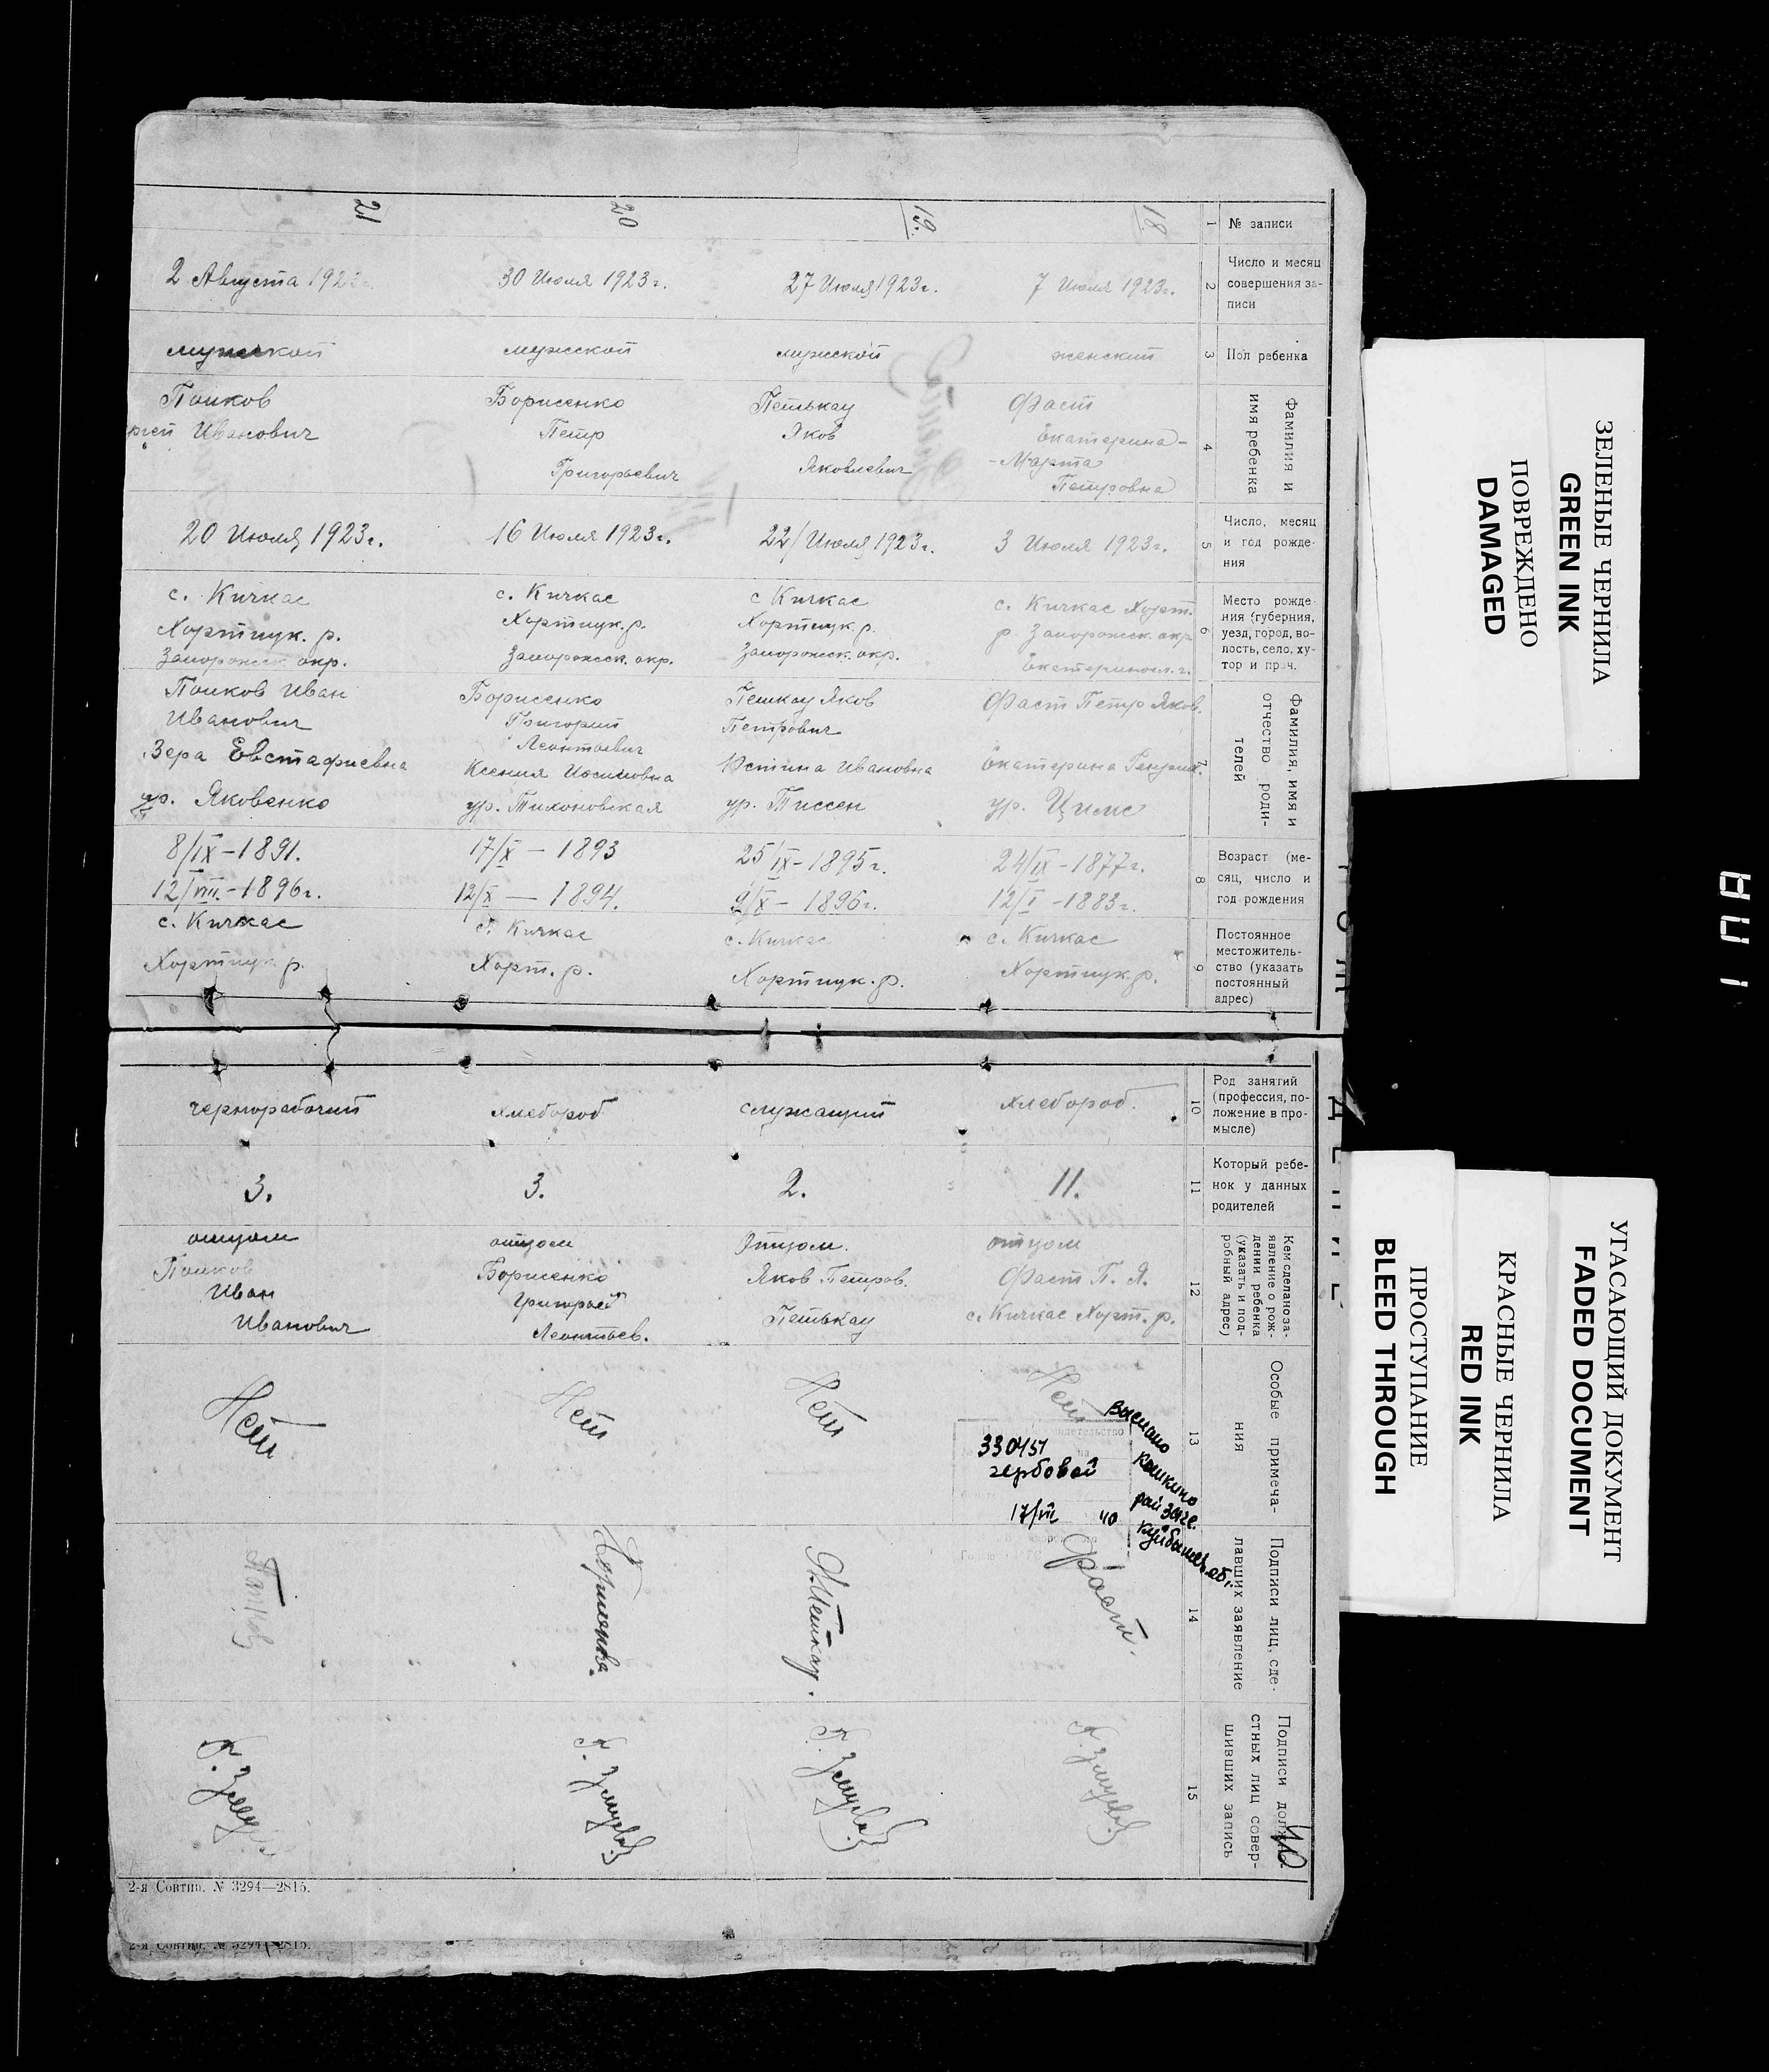 № записи
1
18
19.
20
21
Число и месяц
совершения за-
писи
2
7 Июля 1923г.
27 Июля 1923г.
30 Июля 1923г.
2 Августа 1923г.
Пол ребенка
3
женский
мужской
мужской
мужской
Фамилия и
имя ребенка
4
Фаст
Екатерина-
-Марта
Петровна
Петькау
Яков
Яковлевич
Борисенко
Петр
Григорьевич
Попков
Иванович
Число, месяц
и год рожде-
ния
5
3 Июля 1923г.
22/ Июля 1923г.
16 Июля 1923г.
20 Июля 1923г.
Место рожде-
ния (губерния,
уезд, город, во-
лость, село, ху-
тор и проч.
6
с. Кичкас Хорт.
р. Запорожск. окр
Екатериносл. г.
с Кичкас
Хортицк. р.
Запорожск. окр.
с. Кичкас
Хортицк. р.
Запорожск. окр.
с. Кичкас
Хортицк. р.
Запорожск. окр.
Фамилия, имя и
отчество роди-
телей
7
Фаст Петр Яков.
Екатерина
ур. Цимс
Петкау Яков
Петрович
Юстина Ивановна
ур. Тиссен
Борисенко
Григорий
Леонтьевич
Ксения Иосиповна
ур. Тихоновская
Попков Иван
Иванович
Вера Евстафиевна
ур. Яковенко
Возраст (ме-
сяц, число и
год рождения
8
24/IX-1877г.
12/I-1883г.
25/IX-1895г.
9/X- 1896г.
17/X — 1893
12/X — 1894.
8/IX-1891.
12/VIII.-1896г.
Постоянное
местожитель-
ство (указать
постоянный
адрес)
9
с. Кичкас
Хортицк. р.
с. Кичкас
Хортицк. р.
с. Кичкас
Хорт. р.
с. Кичкас
Хортицк р.
Род занятий
(профессия, по-
ложение в про-
мысле)
10
хлебороб.
служащий
хлебороб
чернорабочий
Который ребе-
нок у данных
родителей
11
11.
2.
3.
3.
Кем сделано за-
явление о рож-
дении ребенка
(указать и под-
робный адрес)
12
отцом
Фаст П. Я.
с. Кичкас Хорт. р.
Отцом.
Яков Петров.
Петькау
отцом
Борисенко
Григорий
Леонтьев.
отцом
Попков
Иван
Иванович
Особые примеча-
ния
13
Нет
330451
гербовой
17/III 40
Выслано
Кошкино
рай загс.
Куйбышев. об.
Нет
Нет
Нет
Подписи лиц, сде-
лавших заявление
14
Фаст.
Я.Петкау.
Подписи долж-
стных лиц совер-
шивших запись
15
40
2-я Совтип. № 3294—2815.
2-я Совтип. № 3294—2815.
ЗЕЛЕНЫЕ ЧЕРНИЛА
GREEN INK
ПОВРЕЖДЕНО
DAMAGED
УГАСАЮЩИЙ ДОКУМЕНТ
FADED DOCUMENT
КРАСНЫЕ ЧЕРНИЛА
RED INK
ПРОСТУПАНИЕ
BLEED THROUGH